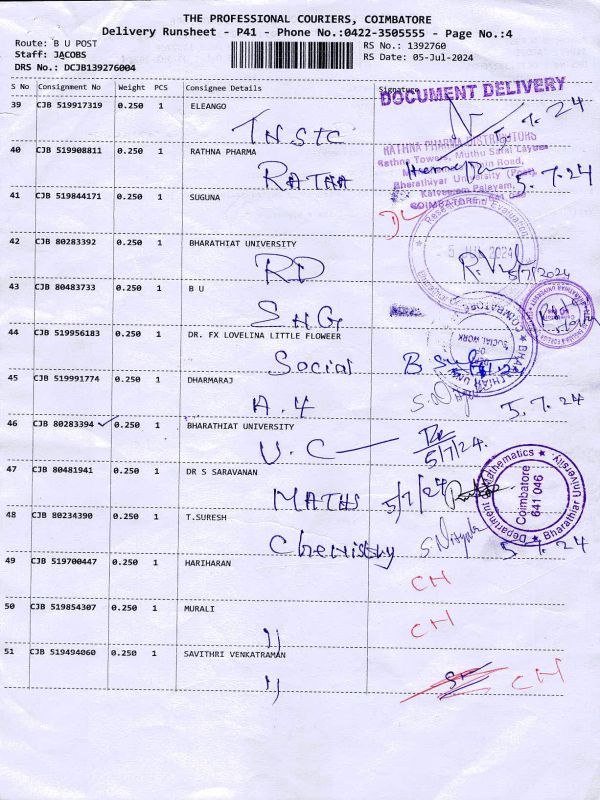 THE PROFESSIONAL COURIERS, COIMBATORE
Delivery Runsheet - P41 - Phone No.:0422-3505555 - Page No.:4
Route: B U POST
RS No.: 1392760
Staff: JACOBS
RS Date: 05-Jul-2024
DRS No.: DCJB139276004
S No Consignment No Weight PCS Consignee Details Signature
DOCUMENT DELIVERY
39 CJB 519917319 0.250 1 ELEANGO
TNSTC
40 CJB 519908811 0.250 1 RATHNA PHARMA
RATHNA PHARMA DISTRIBUTORS
Rathna Towers, Muthu
Road,
Bharathiyar University (Post)
Kalveeram Palayam,
COIMBATORE - 641 046
RATHA
5.7.24
41 CJB 519844171 0.250 1 SUGUNA
DL
42 CJB 80283392 0.250 1 BHARATHIAT UNIVERSITY
RD
5/7/2024
43 CJB 80483733 0.250 1 B U
SNG
44 CJB 519956183 0.250 1 DR. FX LOVELINA LITTLE FLOWEER
Social
SOCIAL WORK
45 CJB 519991774 0.250 1 DHARMARAJ
A.4
5.7.24
46 CJB 80283394 0.250 1 BHARATHIAT UNIVERSITY
U.C
5/7/24.
47 CJB 80481941 0.250 1 DR S SARAVANAN
MATHS
5/7/24
Department of Mathematics
Bharathiar University
Coimbatore
641 046
48 CJB 80234390 0.250 1 T.SURESH
Chemistry
5.7.24
49 CJB 519700447 0.250 1 HARIHARAN
CH
50 CJB 519854307 0.250 1 MURALI
CH
51 CJB 519494060 0.250 1 SAVITHRI VENKATRAMAN
CH